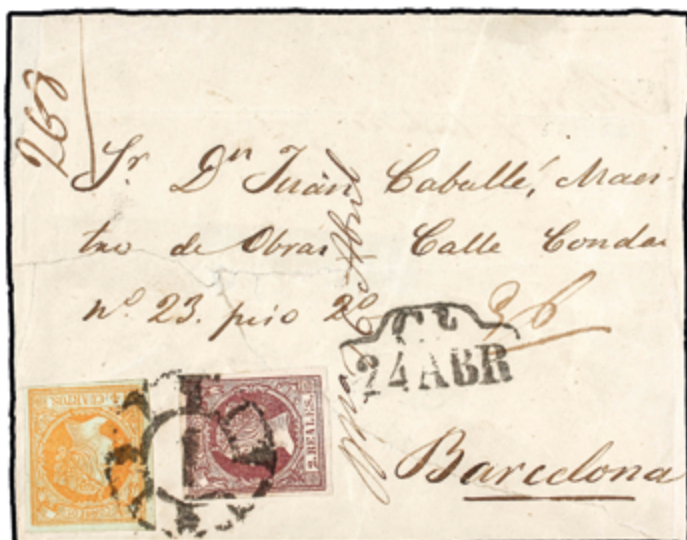 268
Sr. Dn Juan Caballé, Maes-
tro de Obras Calle Condal
nº 23. piso 2º
36
24 ABR
Barcelona
4 CUARTOS
2 REALES.